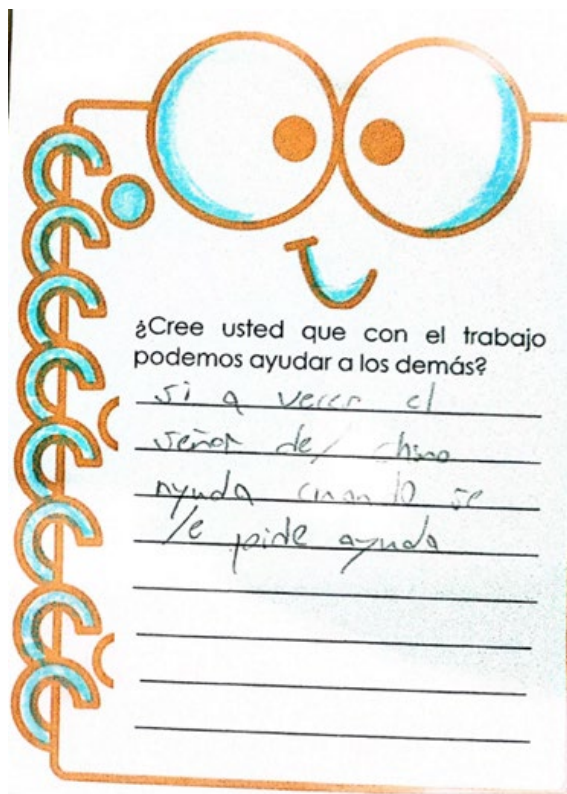 ¿Cree usted que con el trabajo
podemos ayudar a los demás?
si a veces el
señor del
ayuda cuan lo se
le pide ayuda